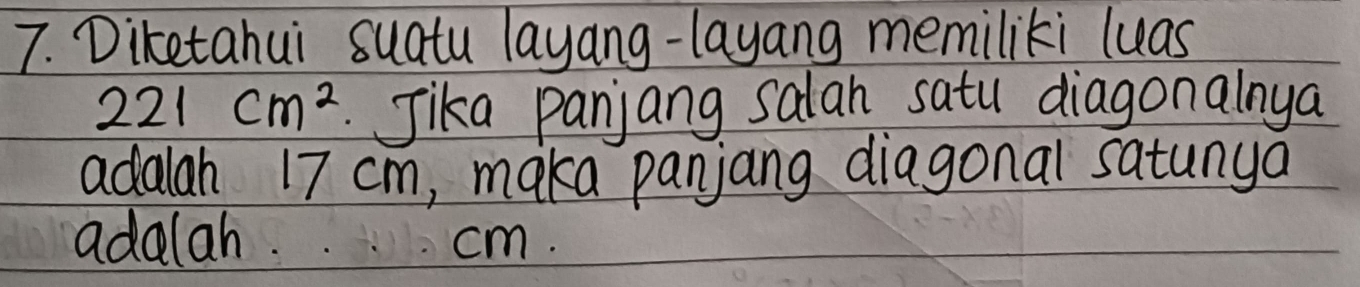 7. Diketahui suatu layang-layang memiliki luas
221 cm². Jika panjang salah satu diagonalnya
adalah 17 cm, maka panjang diagonal satunya
adalah . . . . cm.